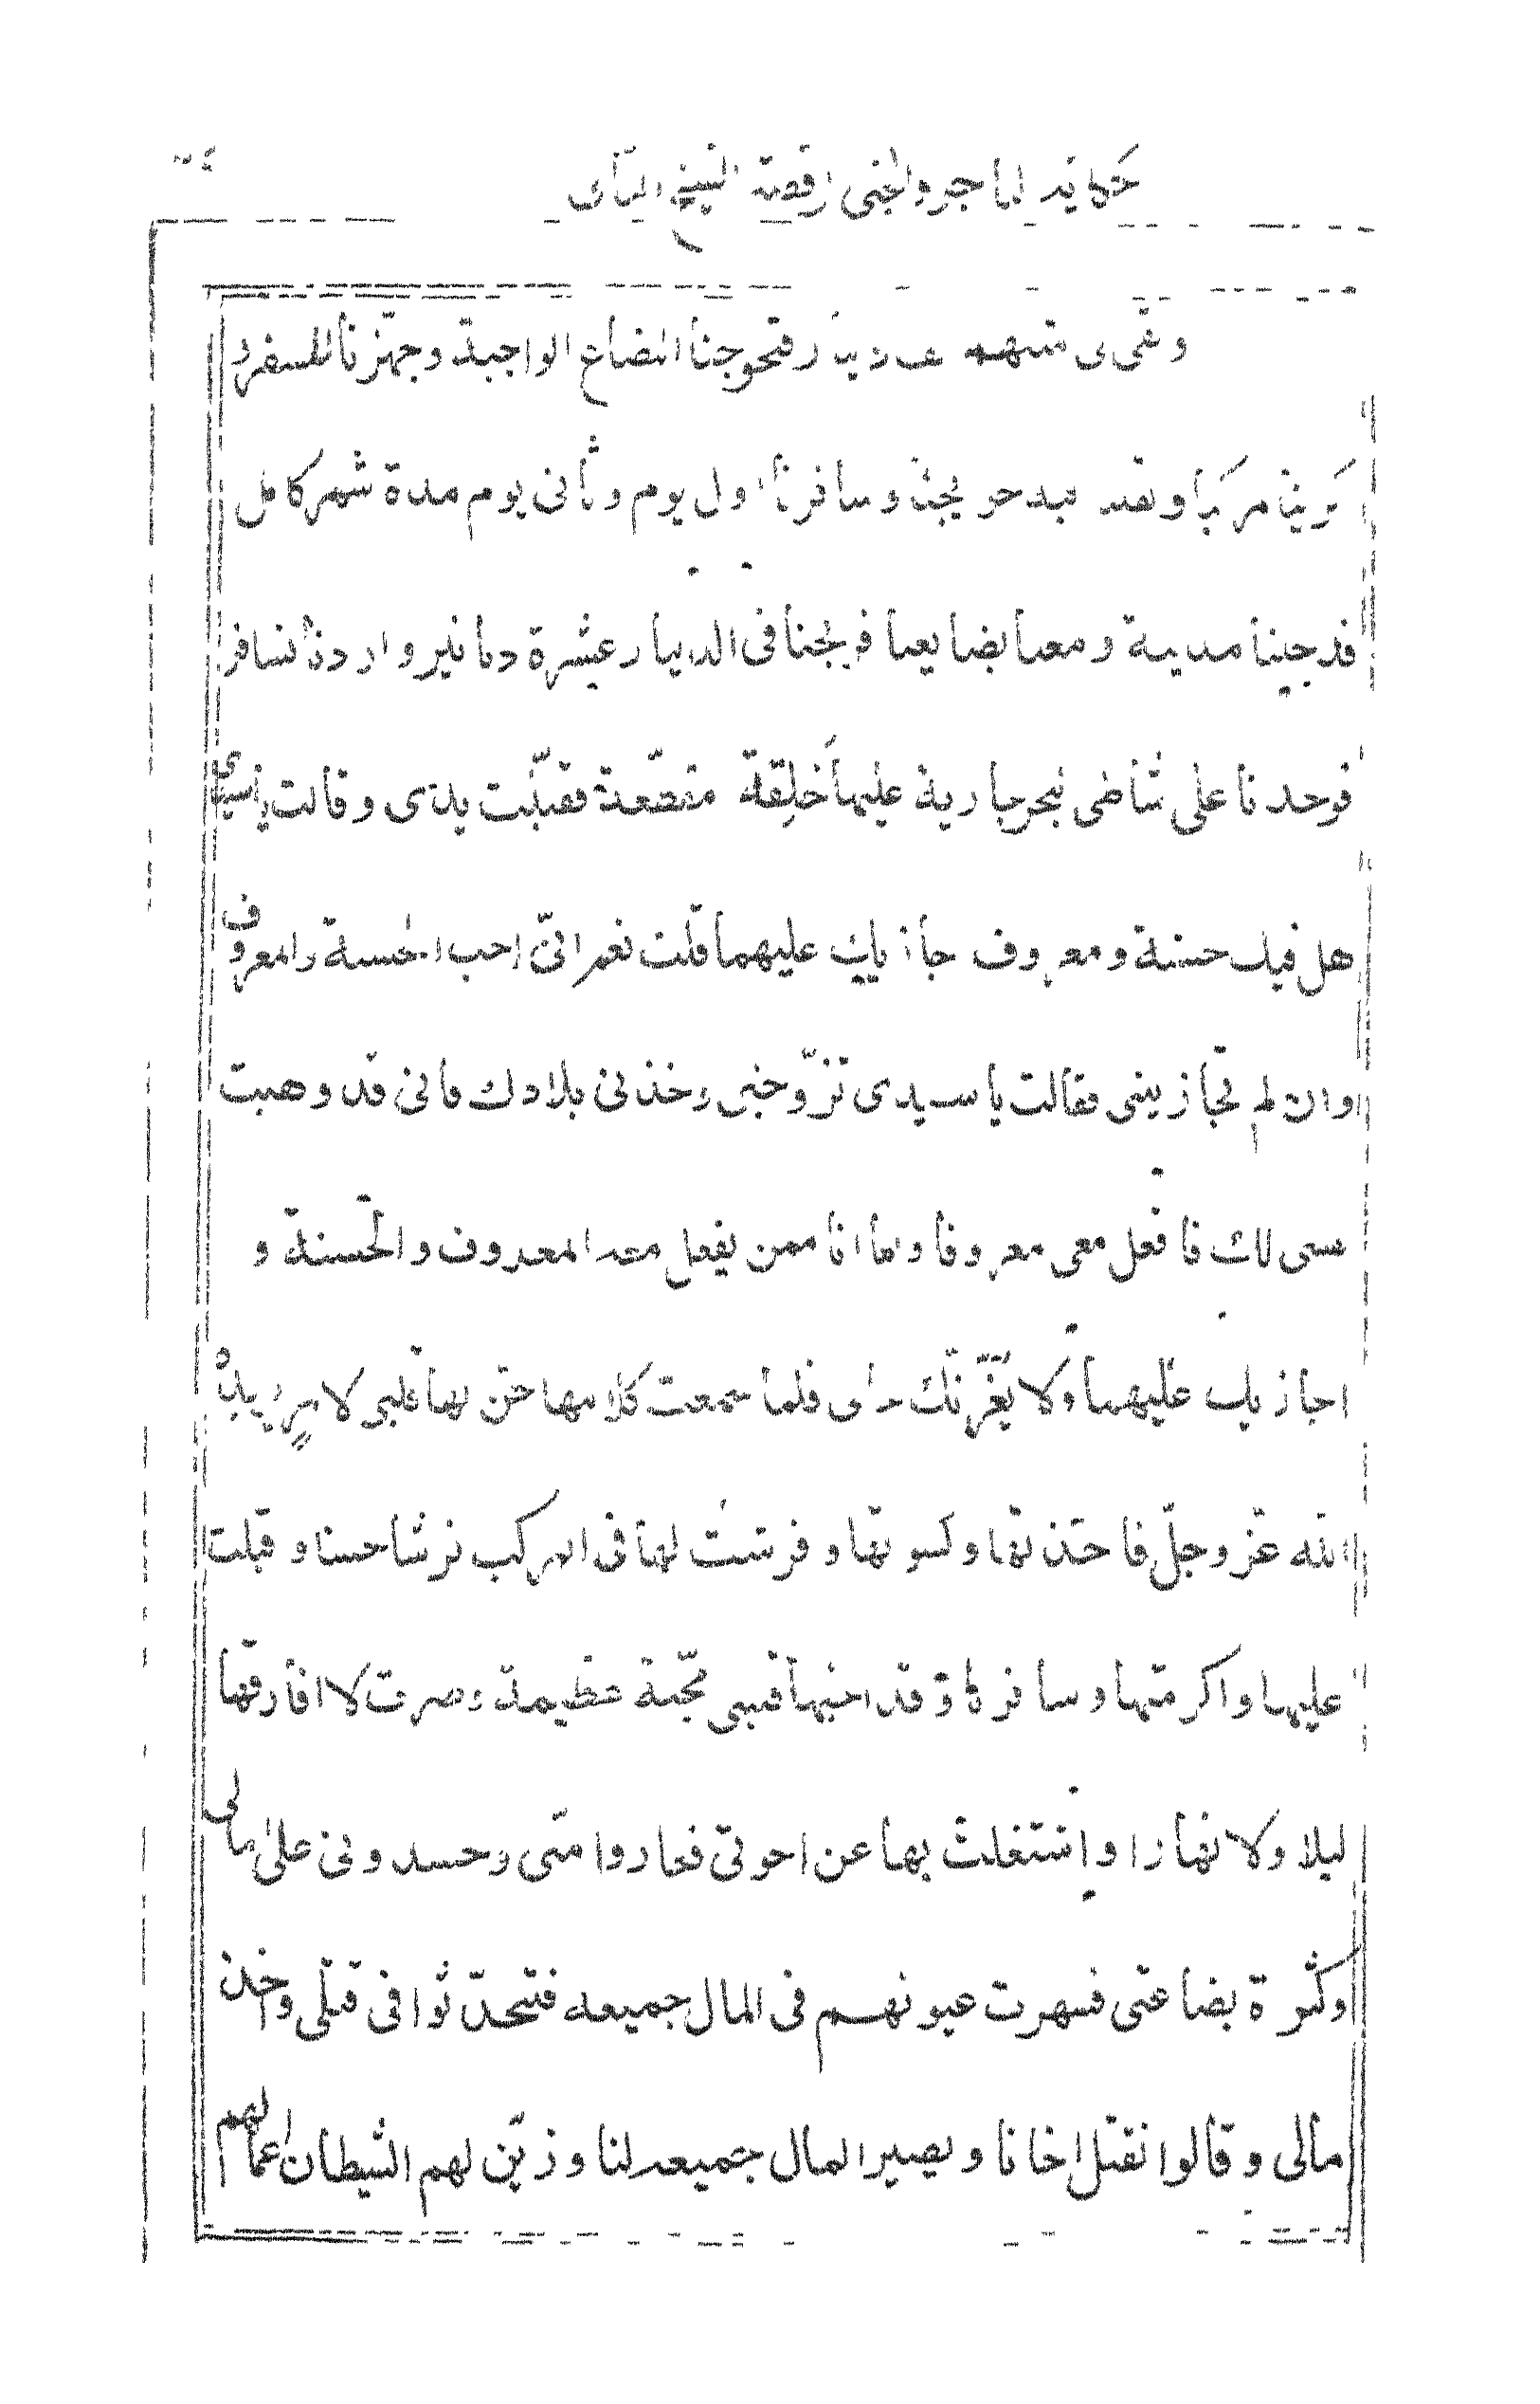 حكاية التاجر والجنى وقصة الشيخ الثانى
منهم الف دينار فتحوجنا البضائع الواجبة وجهزنا للسفر و
كرينا مركبا ونقلنا فيه حوايجنا وسافرنا اول يوم وثانى يوم مدة شهر كامل
فدخلنا مدينة ومعنا بضايعنا فربحنا فى الدينار عشرة دنانير واردنا نسافر
فوجدنا على شاطى البحر جارية عليها خلقة مقطعة فقبلت يدى وقالت يا سيدى
هل فيك حسنة ومعروف اجازيك عليهما قلت نعم انّى احب الحسنة والمعروف
وان لم تجازينى فقالت يا سيدى تزوّجنى وخذنى بلادك فانى قد وهبت
نفسى لك فافعل معى معروفا وانا ممن يفعل معه المعروف والحسنة و
اجازيك عليهما ولا يغرّنّك حالى فلما سمعت كلامها حنّ لها قلبى لامرٍ يريده
الله عزّ وجلّ فاخذتها وكسوتها وفرشت لها فى المركب فرشا حسنا واقبلت
عليها واكرمتها وسافرنا وقد احبها قلبى محبّة عظيمة وصرت لا افارقها
ليلا ولا نهارا واشتغلت بها عن اخوتى فغاروا منّى وحسدونى على مالى
وكثرة بضاعتى فسهرت عيونهم فى المال جميعه فتحدّثوا فى قتلى واخذ
مالى وقالوا نقتل اخانا ويصير المال جميعه لنا وزيّن لهم الشيطان اعمالهم